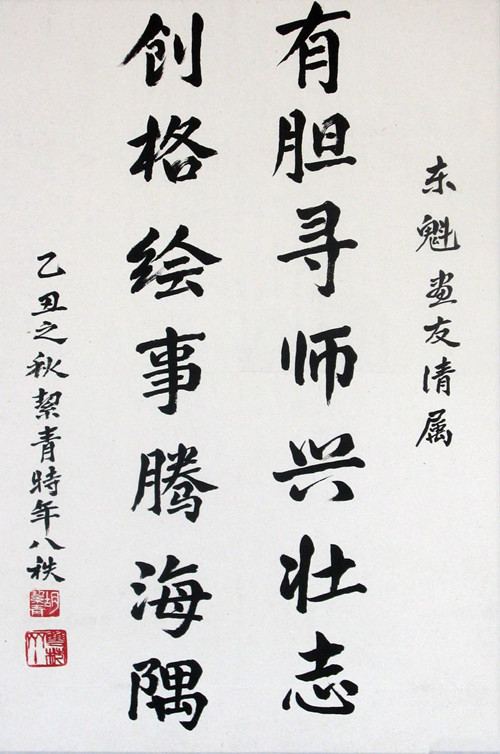 东魁画友清属
有胆寻师兴壮志
创格绘事腾海隅
乙丑之秋絜青時年八秩